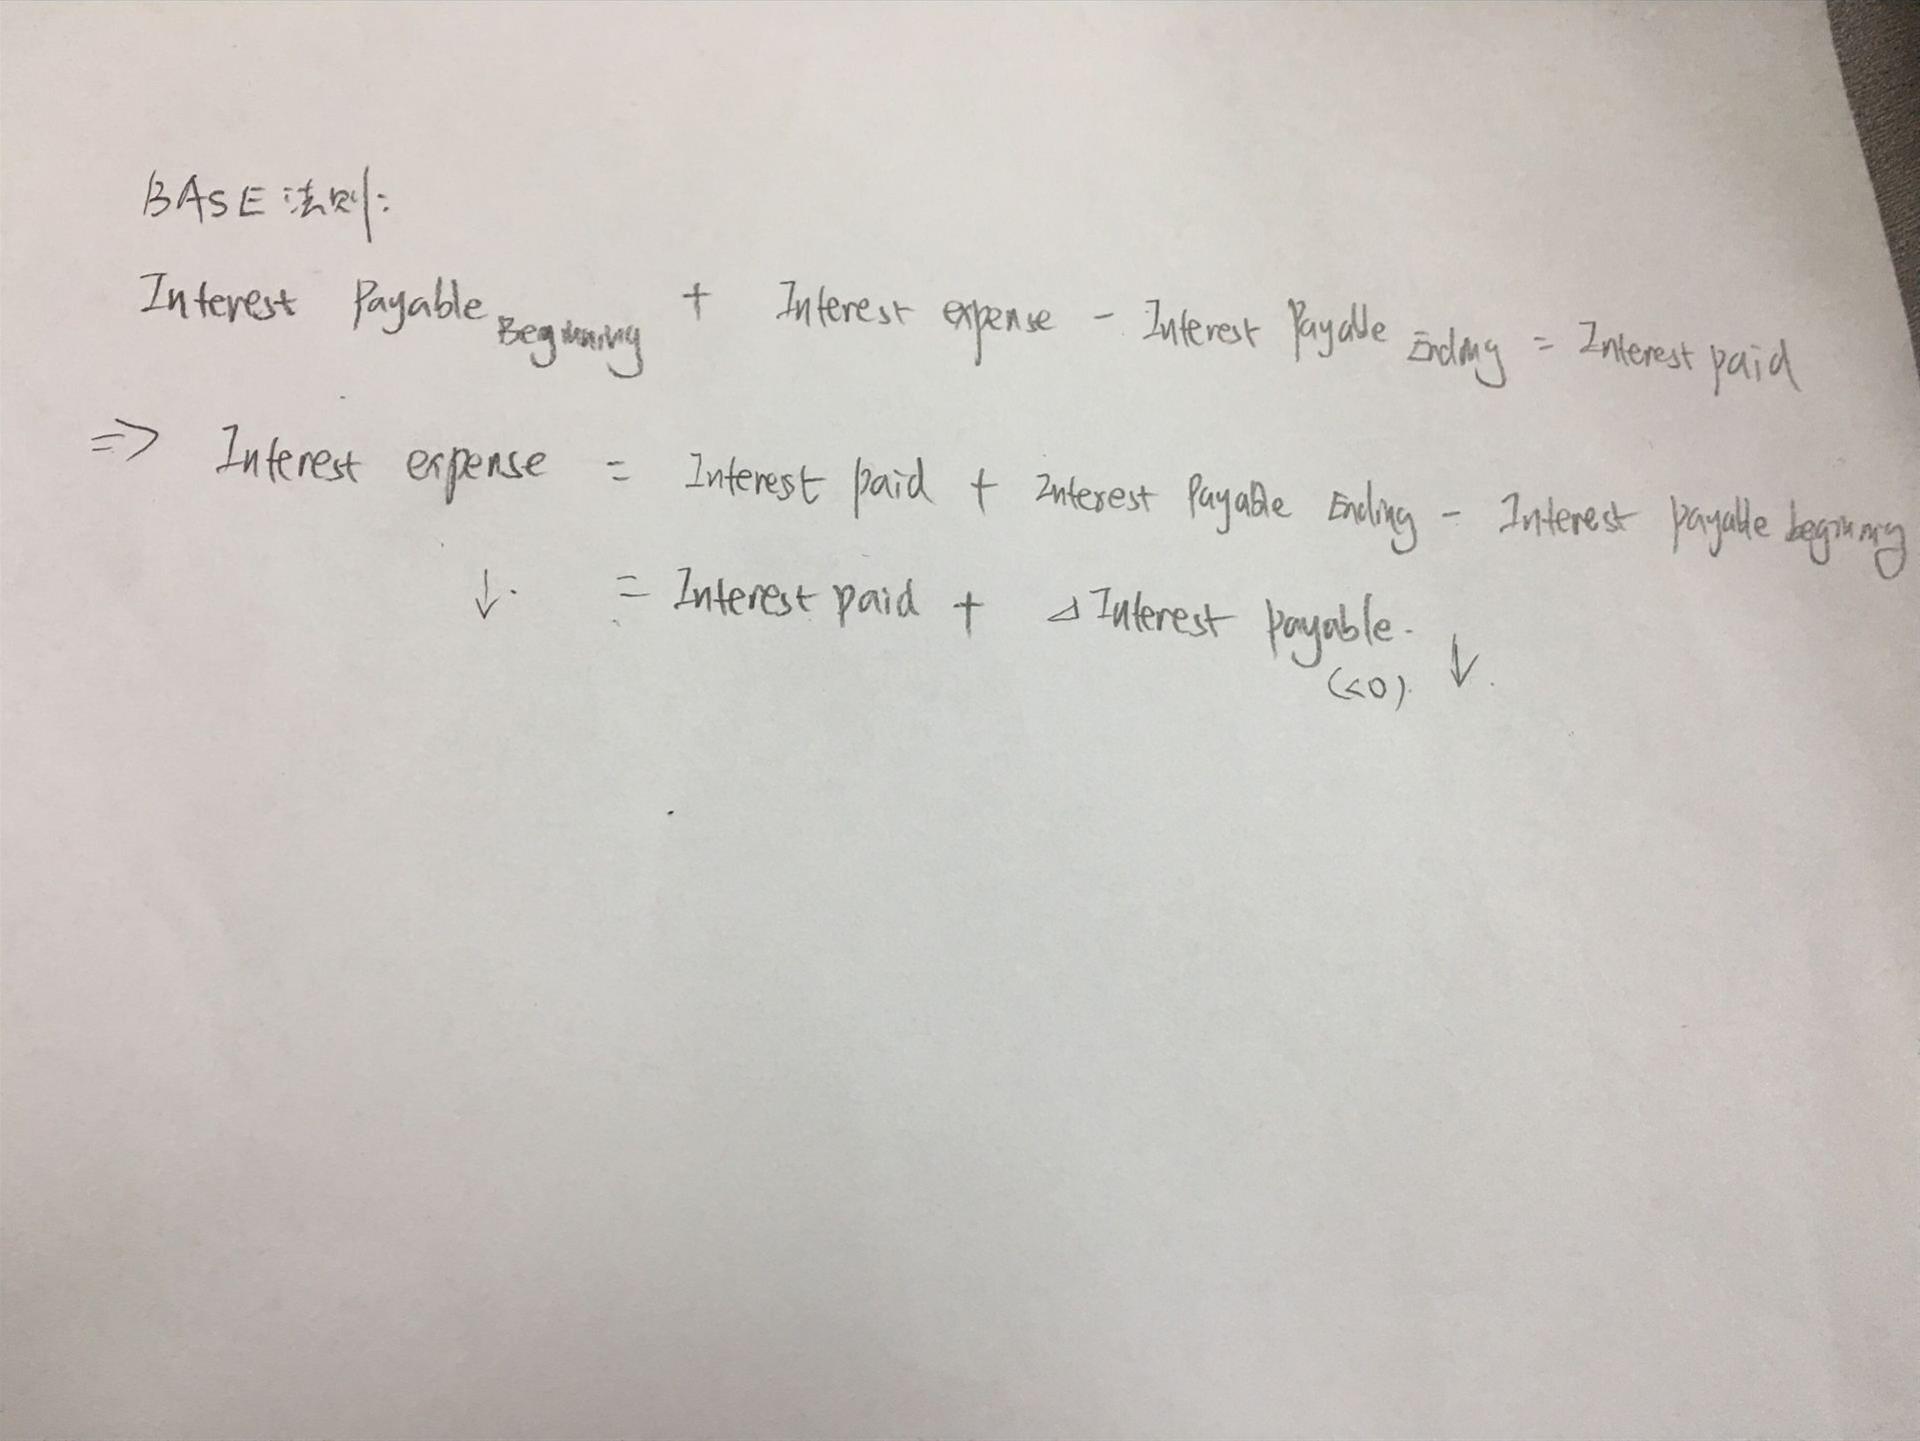 BASE法则:
Interest Payable Beginning + Interest expense - Interest Payable Ending = Interest paid
=> Interest expense = Interest paid + Interest Payable Ending - Interest payable beginning
↓. = Interest paid + ⊿ Interest payable. ↓.
(<0).